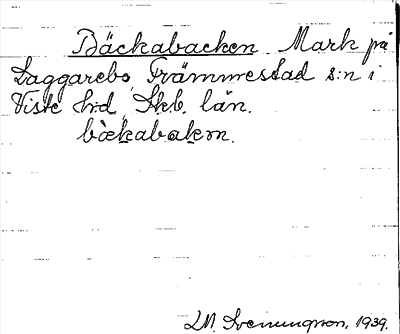 Bäckabacken Mark på
Laggarebo, Främmestad s:n i
Viste h:d, Skb. län.
bækabakɐn.
M. Svenungson, 1939.